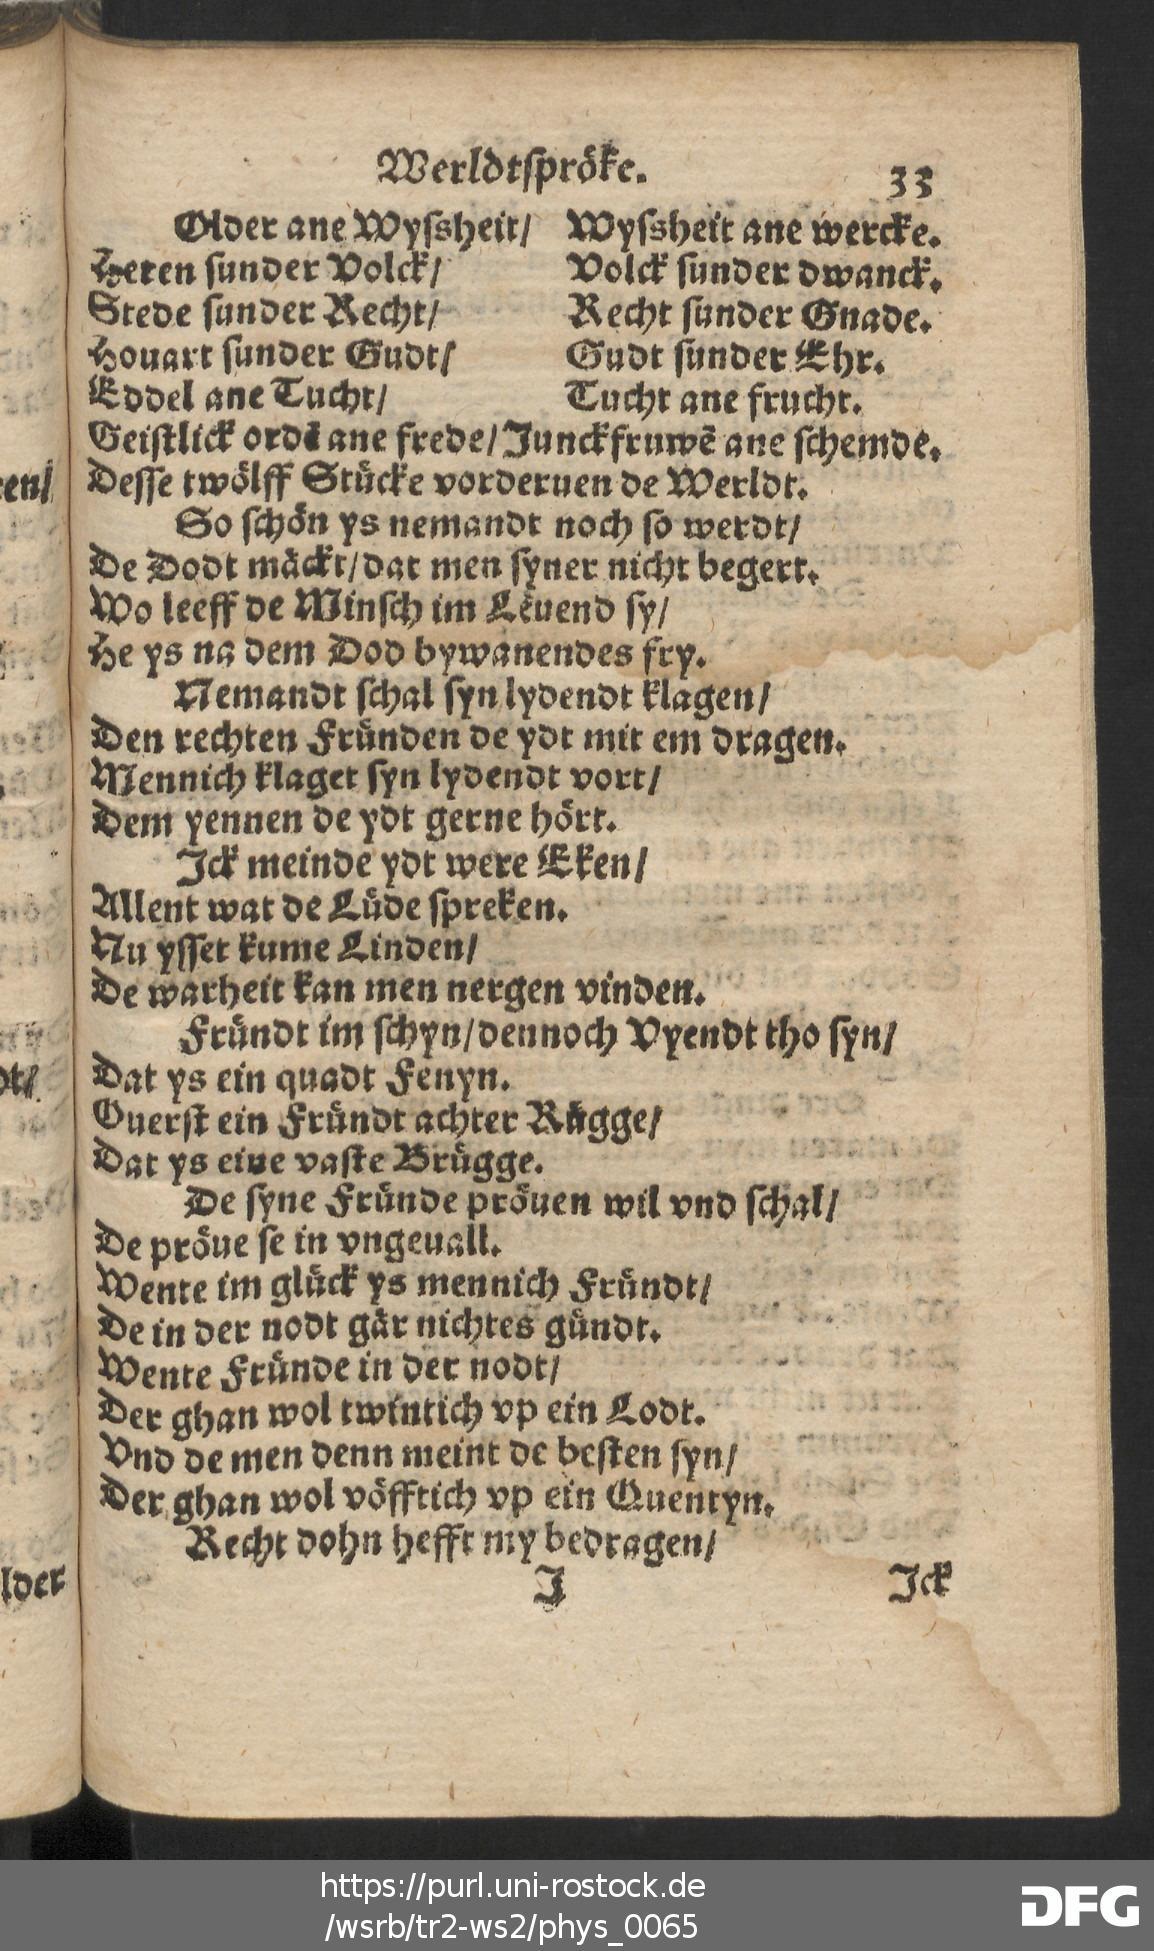 Werldtspröke. 33
Older ane Wyssheit/ Wyssheit ane wercke.
Heren sunder Volck/ Volck sunder dwanck.
Stede sunder Recht/ Recht sunder Gnade.
Houart sunder Gudt/ Gudt sunder Ehr.
Eddel ane Tucht/ Tucht ane frucht.
Geistlick ordē ane frede/ Junckfruwē ane schemde.
Desse twölff Stücke vorderuen de Werldt.
So schön ys nemandt noch so werdt/
De Dodt mäckt/ dat men syner nicht begert.
Wo leeff de Minsch im Lëuend sy/
He ys na dem Dod bywanendes fry.
Nemandt schal syn lydendt klagen/
Den rechten Fründen de ydt mit em dragen.
Mennich klaget syn lydendt vort/
Dem yennen de ydt gerne hört.
Ick meinde ydt were Eken/
Allent wat de Lüde spreken.
Nu ysset kume Linden/
De warheit kan men nergen vinden.
Fründt im schyn/ dennoch Vyendt tho syn/
Dat ys ein quadt Fenyn.
Ouerst ein Fründt achter Rügge/
Dat ys eine vaste Brügge.
De syne Fründe pröuen wil vnd schal/
De pröue se in vngeuall.
Wente im glück ys mennich Fründt/
De in der nodt gär nichtes gündt.
Wente Fründe in der nodt/
Der ghan wol twintich vp ein Lodt.
Vnd de men denn meint de besten syn/
Der ghan wol vöfftich vp ein Quentyn.
Recht dohn hefft my bedragen/
J Ick
lder
https://purl.uni-rostock.de
/wsrb/tr2-ws2/phys_0065
DFG